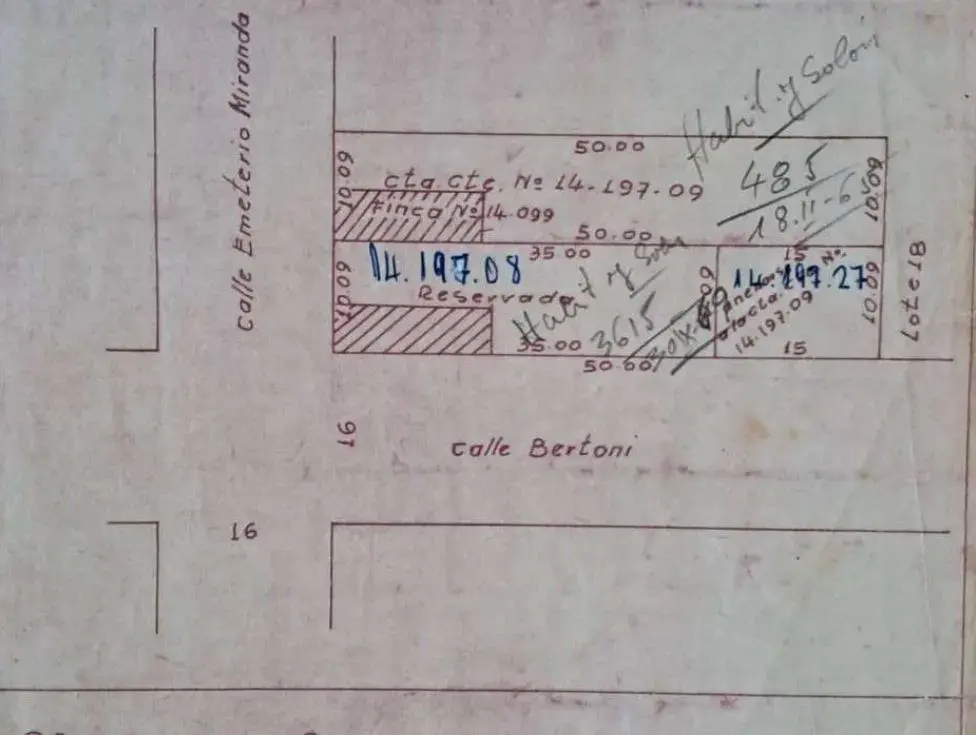 Calle Emeterio Miranda
Habit. y Solon
50.00
10.09
cta.cte. Nº 14-197-09
485
10.09
Finca Nº 14.099
18.11-6
50.00
35.00
15
Nº
14.197.08
14.197.27
10.09
Reservado
Habit y
3615
10.09
anexo
a cta.
14.197.09
Lote 18
35.00
15
50.00
16
calle Bertoni
16